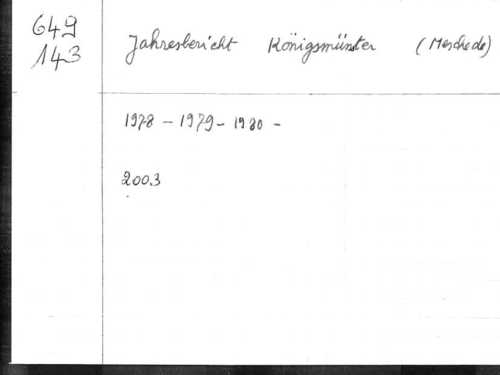 649
143
Jahresbericht Königsmünster (Meschede)
1978 - 1979 - 1980 -
2003